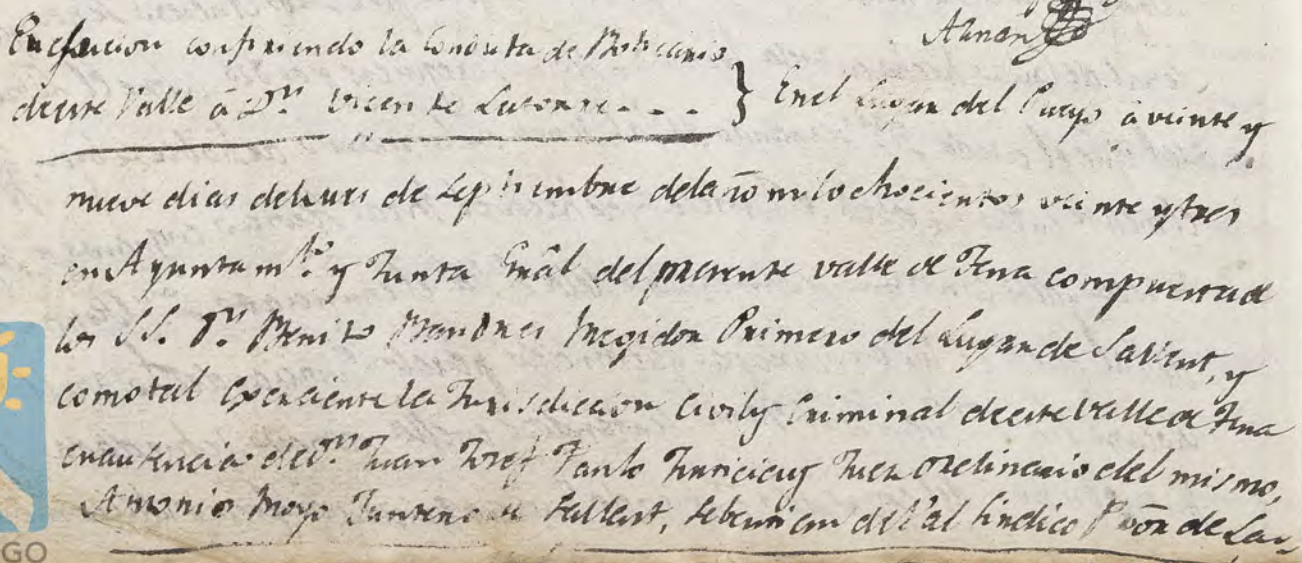 Aznar
confiriendo la Conduta de Boticario
de este Valle à Dn. Vicente Latorre - - - } En el Lugar del Pueyo à veinte y
nueve dias del mes de Septiembre del año mil ochocientos veinte y tres
en Ayuntamto. y Junta Gnâl del presente valle de Tena compuesta de
los SS. Dn. Benito Regidor Primero del Lugar de Sallent, y
como tal exerciente la Jurisdiccion Civil y Criminal de este Valle de Tena
en ausencia de Dn. Juan Josef Fanlo Juez ordinario del mismo,
Antonio Juntero de Sallent, Sebastian del Sindico Pror. de La-
GO